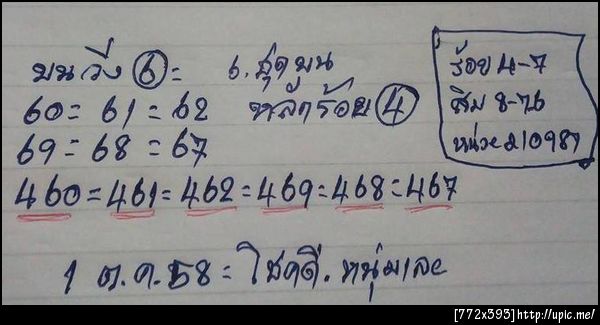 บนวิ่ง 6 = 6. ชุดบน
60 = 61 = 62 หลักร้อย 4
69 = 68 = 67
460 = 461 = 462 = 469 = 468 = 467
1 ต.ค. 58 = โชคดี. หนุ่มเละ
ร้อย 4-7
สิบ 8-76
หน่วย 210987
[772x395]http://upic.me/